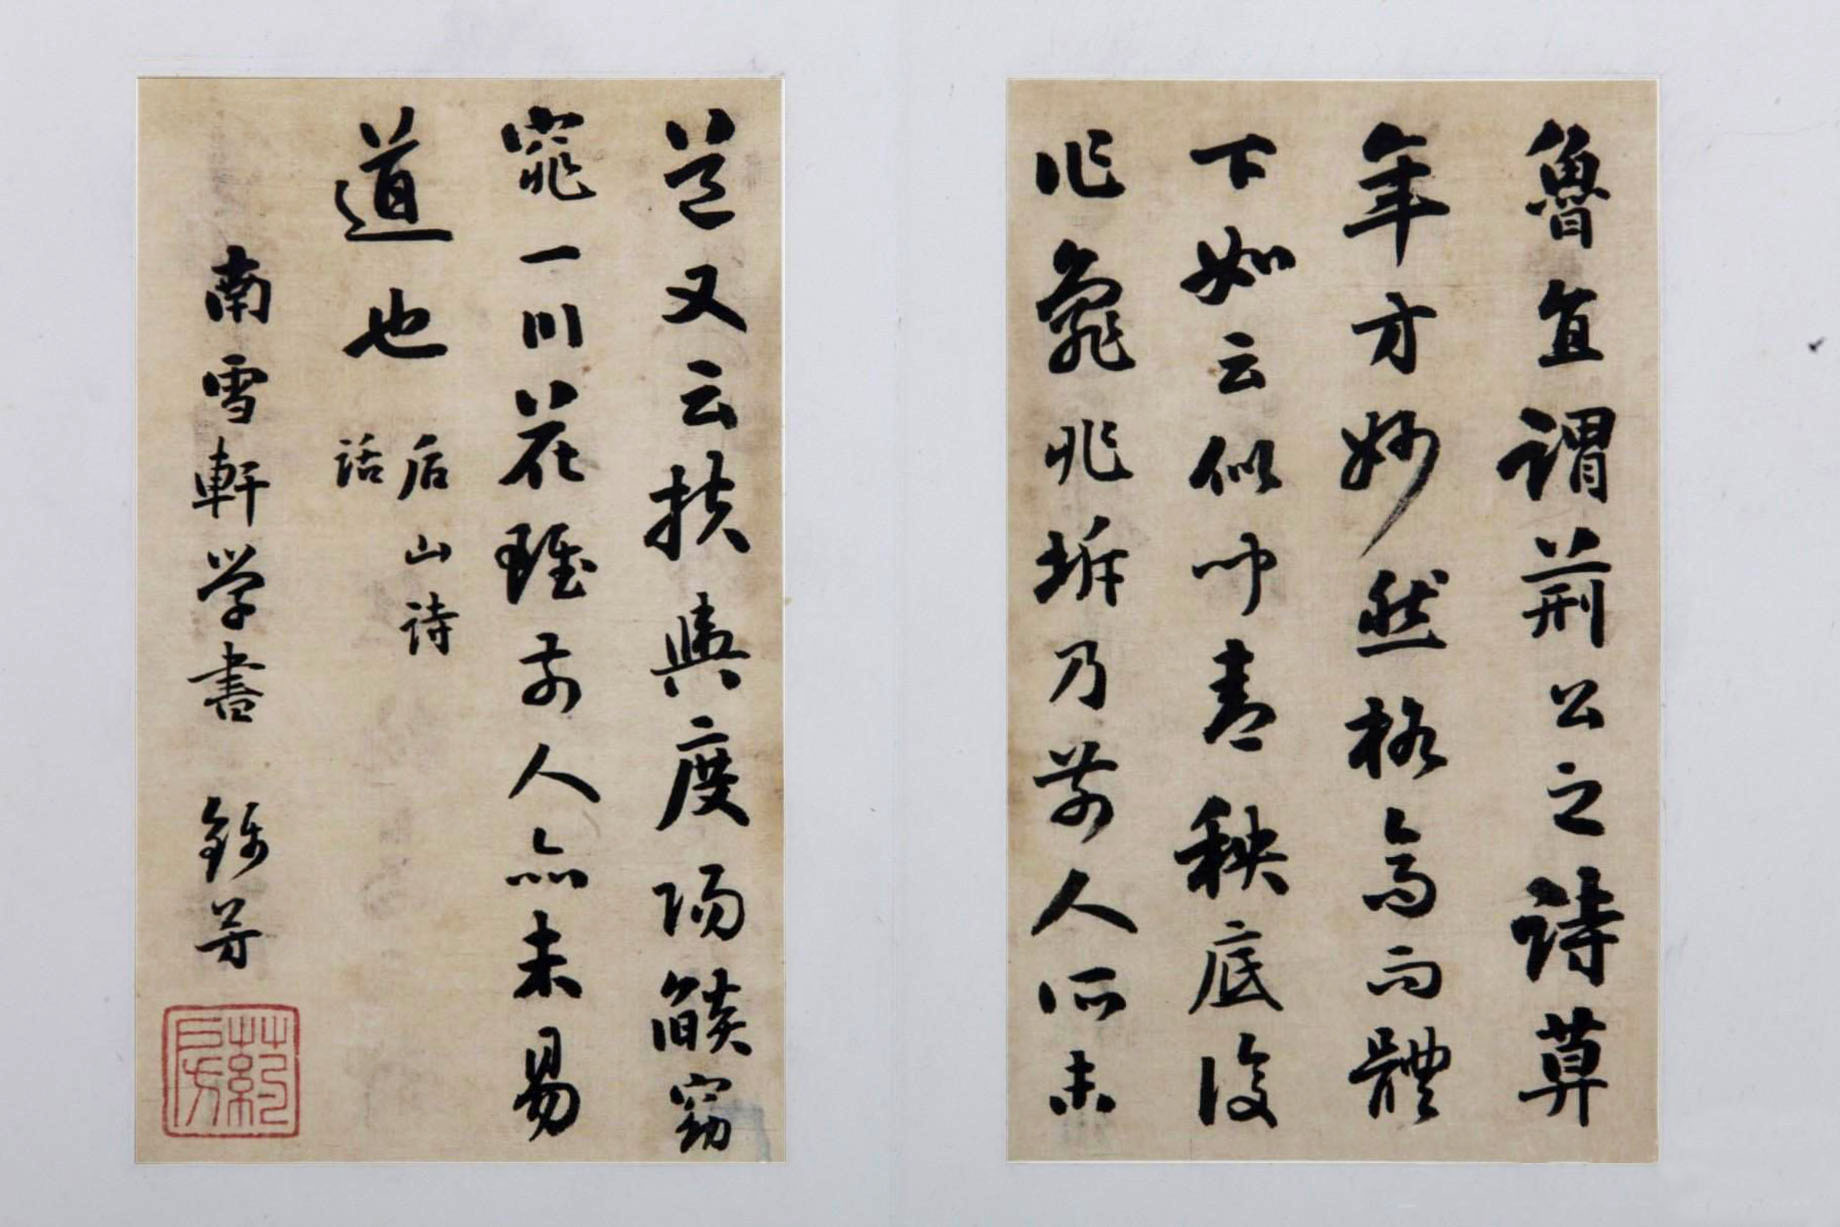 魯直謂荊公之詩莫
年方妙然格高而體
下如云似聞青秧底復
作龜兆坼乃前人所未
道又云扶輿度陽燄窈
窕一川花雖前人亦未易
道也
后山詩
話
南雪軒学書 錦芳
葯房